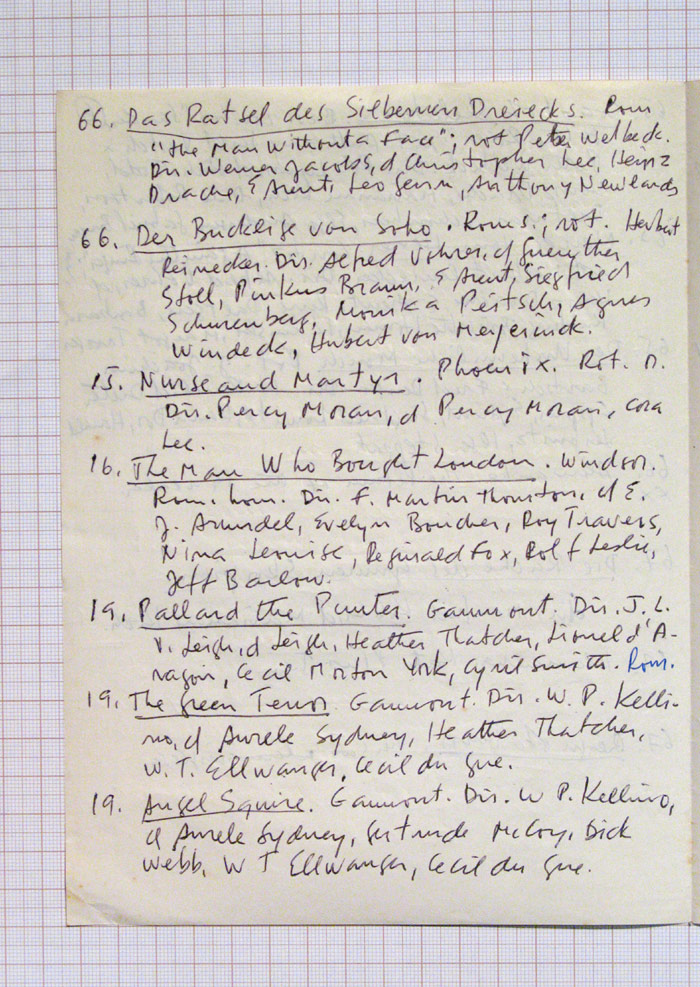 66. Das Ratsel des Silbernen Dreiecks. Rom
"the Man Without a Face"; rot Peter Welbeck.
Dir. Werner Jacobs, d Christopher Lee, Heinz
Drache, E Arent, Leo Genn, Anthony Newlands
66. Der Bucklige von Soho. Roms.; rot. Herbert
Reinecker. Dir. Alfred Vohrer, d Guenther
Stoll, Pinkus Braun, E Arent, Siegfried
Schurenberg, Monika Peitsch, Agnes
Windeck, Hubert von Meyerinck.
15. Nurse and Martyr. Phoenix. Rot. o.
Dir. Percy Moran, d Percy Moran, Cora
Lee.
16. The Man Who Bought London. Windsor.
Rom. hom. Dir. F. Martin Thornton, d E.
J. Arundel, Evelyn Boucher, Roy Travers,
Nina Leonise, Reginald Fox, Rolf Leslie,
Jeff Barlow.
19. Pallard the Punter. Gaumont. Dir. J. L.
V. Leigh, d Leigh, Heather Thatcher, Lionel d'A-
ragon, Cecil Morton York, Cyril Smith. Rom.
19. The Green Terror. Gaumont. Dir. W. P. Kelli-
no, d Aurele Sydney, Heather Thatcher,
W. T. Ellwanger, Cecil du Gue.
19. Angel Esquire. Gaumont. Dir. W P. Kellino,
d Aurele Sydney, Gertrude McCoy, Dick
Webb, W T Ellwanger, Cecil du Gue.